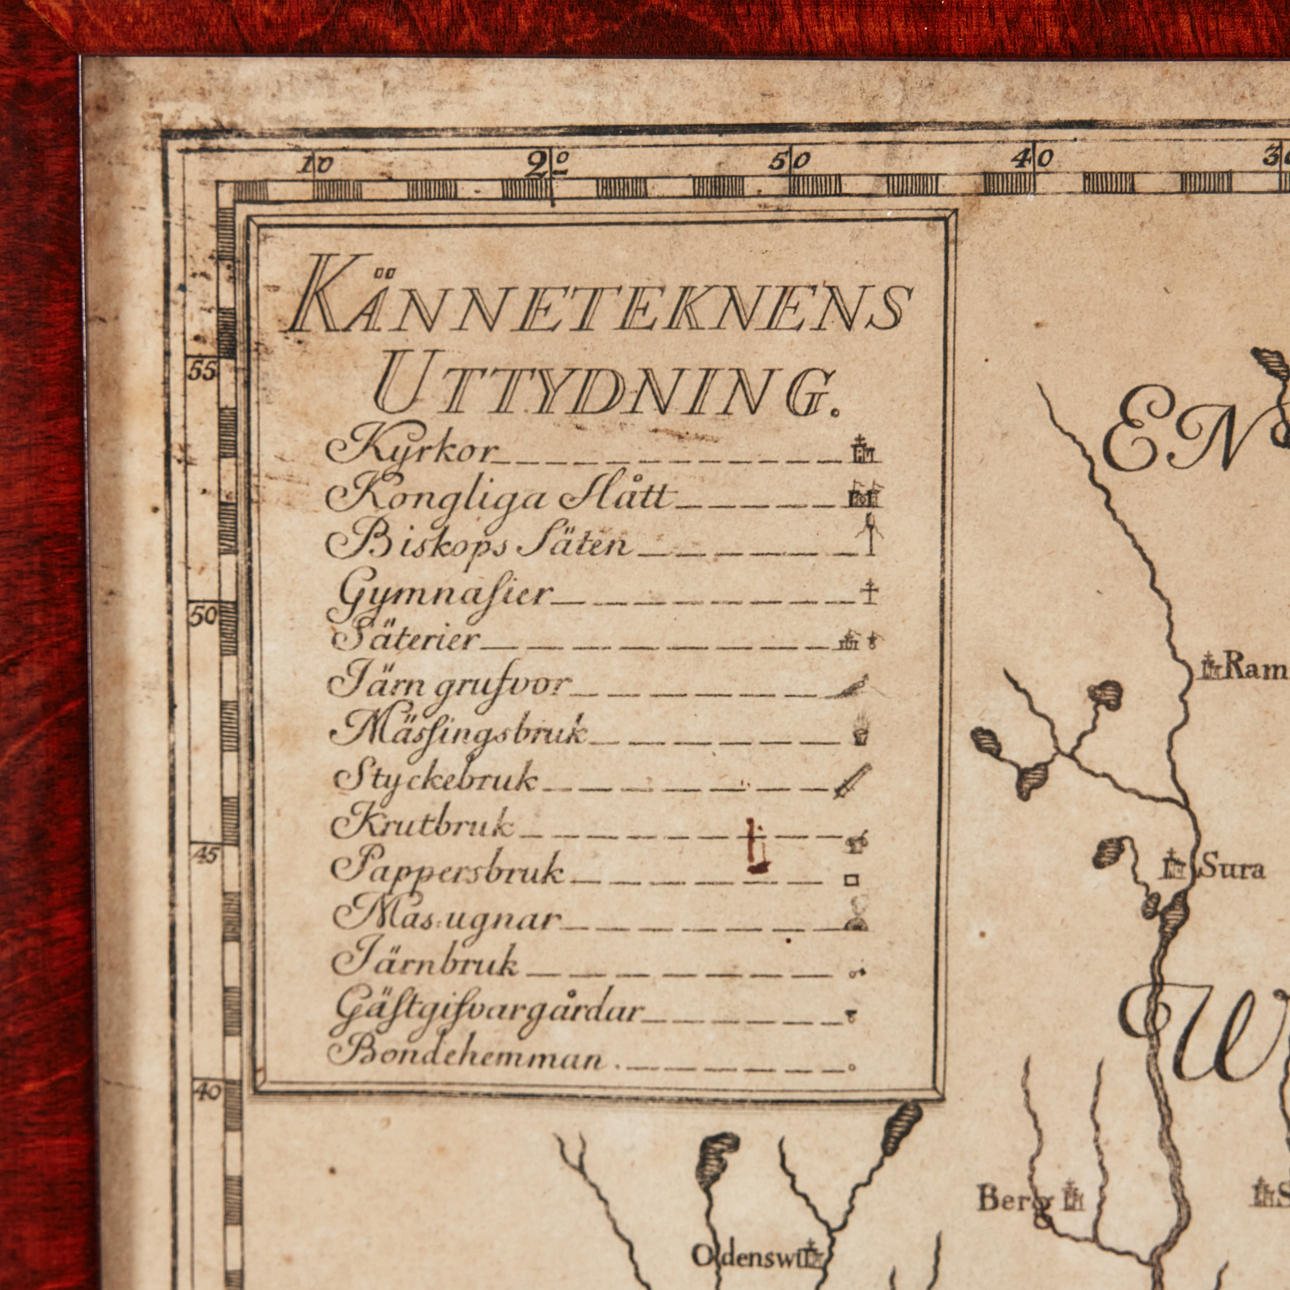 10 20 50 40 30
KÄNNETEKNENS
UTTYDNING.
Kyrkor
Kongliga Slått
Biskops Säten
Gymnasier
Säterier
Järn grufvor
Mässingsbruk
Styckebruk
Krutbruk
Pappersbruk
Mas:ugnar
Järnbruk
Gästgifvargårdar
Bondehemman
55
50
45
40
EN
Ram
Sura
W
Berg
S
Odenswi